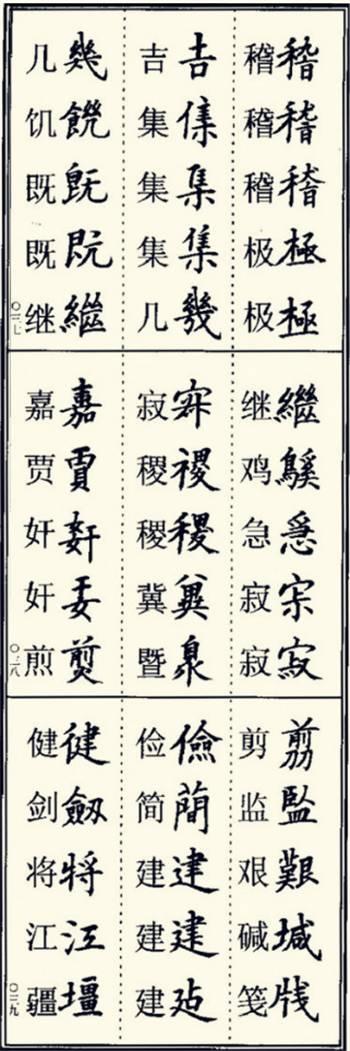 稽稽稽極極
稽稽稽极极
吉集集幾
吉集集集几
幾饑既既繼
几饥既既继
〇三七
繼急寂
继鸡急寂寂
稷冀
寂稷稷冀暨
嘉賈
嘉贾奸奸煎
〇三八
翦監艱堿牋
剪监艰碱笺
儉蕳建建
俭简建建建
健劒將江壃
健剑将江疆
〇三九